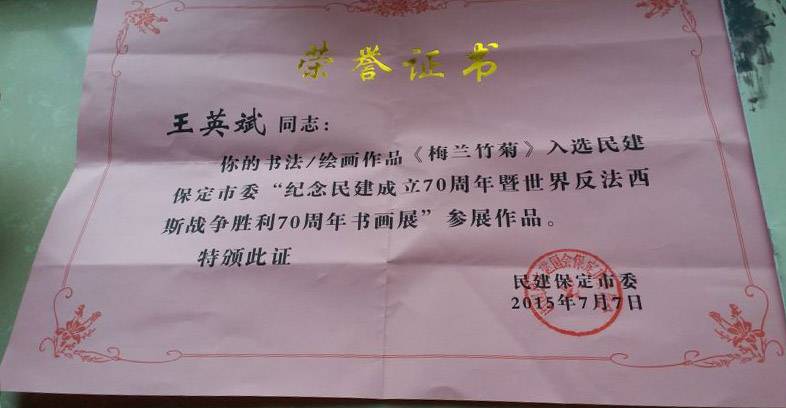 荣誉证书
王英斌 同志：
你的书法/绘画作品《梅兰竹菊》入选民建
保定市委“纪念民建成立70周年暨世界反法西
斯战争胜利70周年书画展”参展作品。
特颁此证
民建保定市委
2015年7月7日